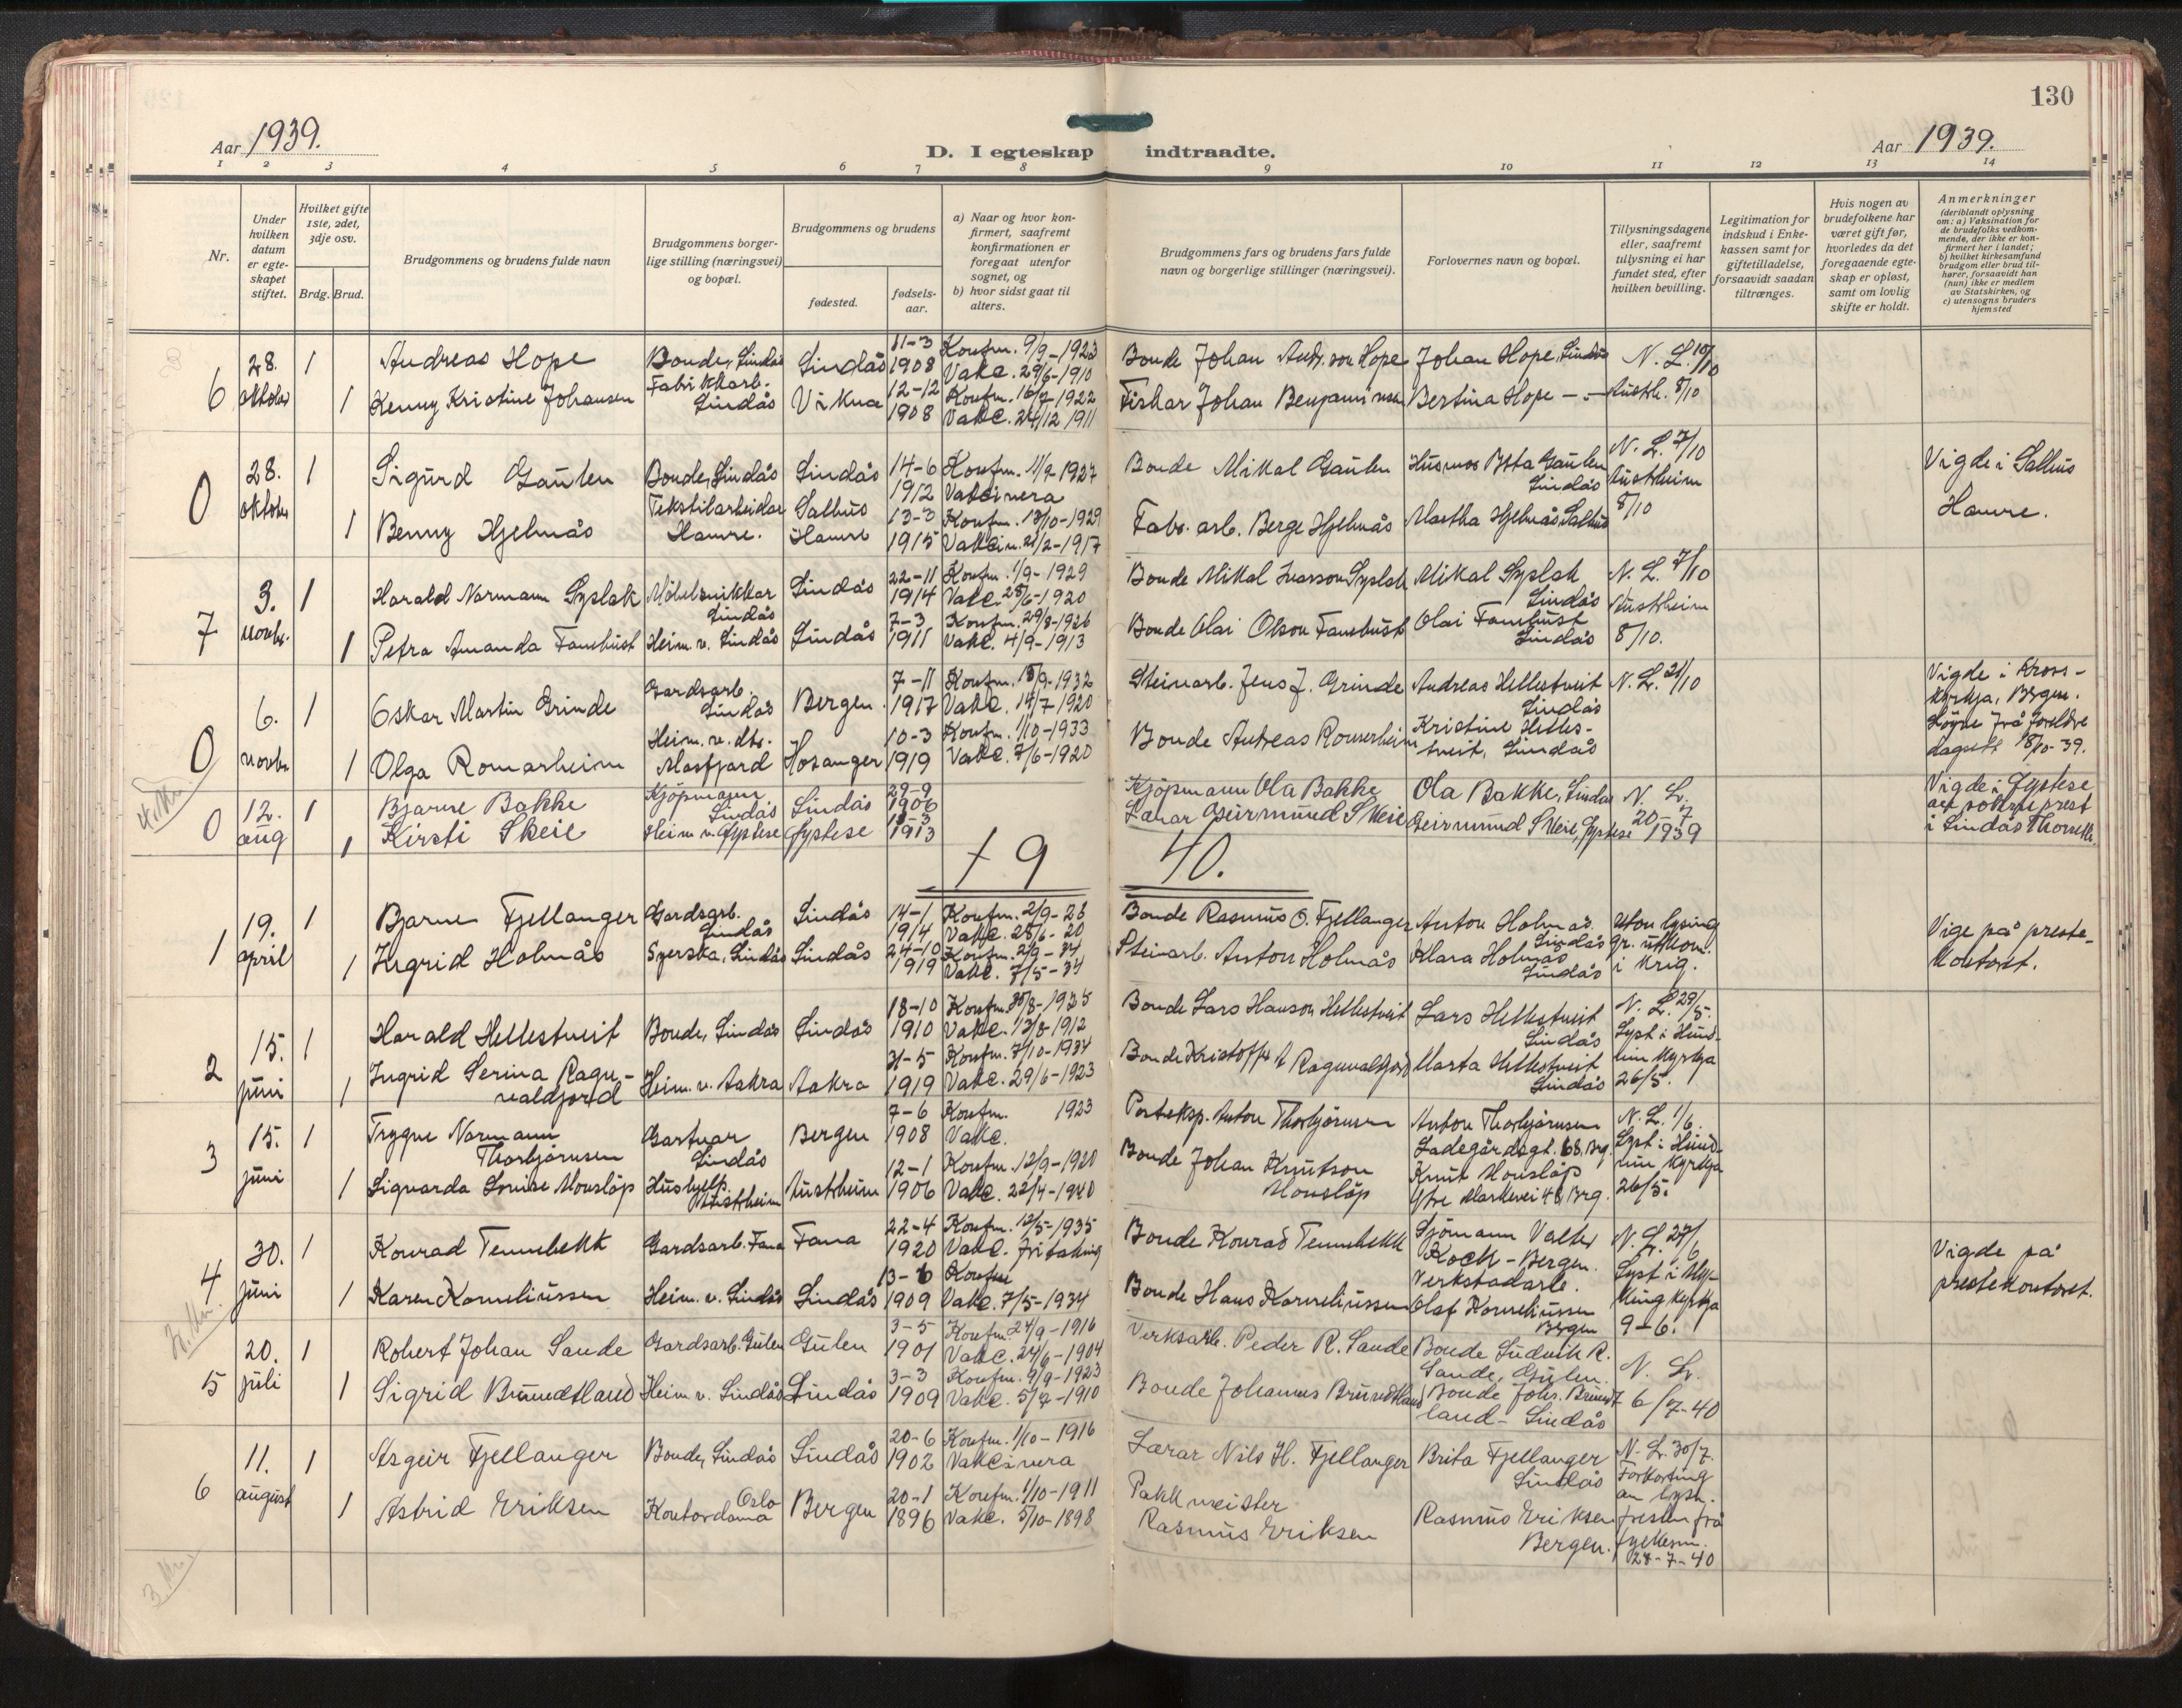 130
Aar 1939.
D. I egteskap indtraadte.
Aar 1939.
1 2 3 4 5 6 7 8 9 10 11 12 13 14
Nr.
Under hvilken datum er egteskapet stiftet.
Hvilket gifte 1ste, 2det, 3dje osv.
Brdg. Brud.
Brudgommens og brudens fulde navn
Brudgommens borgerlige stilling (næringsvei) og bopæl.
Brudgommens og brudens
fødested.
fødselsaar.
a) Naar og hvor konfirmert, saafremt konfirmationen er foregaat utenfor sognet, og
b) hvor sidst gaat til alters.
Brudgommens fars og brudens fars fulde navn og borgerlige stillinger (næringsvei).
Forlovernes navn og bopæl.
Tillysningsdagene eller, saafremt tillysning ei har fundet sted, efter hvilken bevilling.
Legitimation for indskud i Enkekassen samt for giftetilladelse, forsaavidt saadan tiltrænges.
Hvis nogen av brudefolkene har været gift før, hvorledes da det foregaaende egteskap er opløst, samt om lovlig skifte er holdt.
Anmerkninger
(deriblandt oplysning om: a) Vaksination for de brudefolks vedkommende, der ikke er konfirmert her i landet; b) hvilket kirkesamfund brudgom eller brud tilhører, forsaavidt han (hun) ikke er medlem av Statskirken, og c) utensogns bruders hjemsted
6 28. oktober 1 Andreas Hope Bonde, Lindås Lindås 11-3 1908 Konfm. 9/9-1923 Vakc. 29/6-1910 Bonde Johan Andr.son Hope Johan Hope, Lindås N. L. 10/10
1 Kenny Kristine Johansen Fabrikkarb. Lindås Vikna 12-12 1908 Konfm. 16/7-1922 Vakc. 24/12 1911 Fiskar Johan Benjaminsen Bertina Hope -"- Austrh. 8/10
0 28. oktober 1 Sigurd Gaulen Bonde, Lindås Lindås 14-6 1912 Konfm. 11/9-1927 Vakcinera Bonde Mikal Gaulen Husmor Gaulen Lindås N. L. 7/10 Austrheim 8/10 Vigde i Salhus
1 Benny Hjelmås Tekstilarbeidar Hamre. Salhus Hamre 13-3 1915 Konfm. 13/10-1929 Vakcin. 21/2-1917 Fabr. arb. Berge Hjelmås Martha Hjelmås, Salhus Hamre.
7 3. novbr. 1 Harald Normann Syslak Möbelsnikkar Lindås Lindås 22-11 1914 Konfm. 1/9-1929 Vakc. 28/6-1920 Bonde Mikal Ivarson Syslak Mikal Syslak Lindås N. L. 7/10
1 Petra Amanda Fanebust Heim. v. Lindås Lindås 7-3 1911 Konfm. 29/8-1926 Vakc. 4/9-1913 Bonde Olai Olson Fanebust Olai Fanebust Lindås Austrheim 8/10.
0 6. novbr 1 Oskar Martin Grinde Gardsarb. Lindås Bergen 7-11 1917 Konfm. 18/9-1932 Vakc. 14/7-1920 Steinarb. Jens J. Grinde Andreas Hellestveit Lindås N. L. 21/10 Vigde i Krosskyrkja, Bergen.
1 Olga Romarheim Heim. v. dtr. Masfjord Hosanger 10-3 1919 Konfm. 1/10-1933 Vakc. 7/6-1920 Bonde Andreas Romarheim Kristine Hellestveit, Lindås Løyve frå foreldre 18/10-39.
0 12. aug 1 Bjarne Bakke Kjöpmann Lindås Lindås 29-9 1906 Kjöpmann Ola Bakke Ola Bakke, Lindås N. L. 20-7 1939 Vigde i Gystese av sokneprest i Lindås
1 Kirsti Skeie Heim v. Gystese Gystese 1913 Lærar Geirmund Skeie Geirmund Skeie, Gystese
19 40.
1 19. april 1 Bjarne Fjellanger Gardsarb. Lindås Lindås 14-1 1914 Konfm. 2/9-28 Vakc. 28/6-20 Bonde Rasmus O. Fjellanger Anton Holmås Lindås Utan lysing gr. utkom. i krig. Vige på prestekontoret.
1 Ingrid Holmås Syerska, Lindås Lindås 24-10 1919 Konfm. 2/9-34 Vakc. 7/5-34 Steinarb. Anton Holmås Klara Holmås Lindås
2 15. juni 1 Harald Hellestveit Bonde, Lindås Lindås 18-10 1910 Konfm. 30/8-1925 Vakc. 13/8-1912 Bonde Lars Hanson Hellestveit Lars Hellestveit Lindås N. L. 29/5.
1 Ingrid Serina Ragnvaldjord Heim. v. Aakra Aakra 31-5 1919 Konfm. 7/10-1934 Vakc. 29/6-1923 Bonde Kristoffer Ragnvaldjord Marta Hellestveit Lindås Lyst i Hundvin kyrkja 26/5.
3 15. juni 1 Trygve Normann Thorbjørnsen Gartnar Lindås Bergen 7-6 1908 Konfm. 1923 Vakc. Posteksp. Anton Thorbjørnsen Anton Thorbjørnsen Ladegårdsgt. 68, Brg. N. L. 1/6. Lyst i Hundvin kyrkja 26/5.
1 Sigvarda Lovise Monslöp Hushjelp Austrheim Austrheim 12-1 1906 Konfm. 12/9-1920 Vakc. 22/4-1940 Bonde Johan Knutson Monslöp Knut Monslöp Ytre Markevei 4, Brg.
4 30. juni 1 Konrad Tennebekk Gardsarb. Fana Fana 22-4 1920 Konfm. 12/5-1935 Vakc. fritaking Bonde Konrad Tennebekk Sjömann Valter Koch - Bergen. N. L. 27/6 Vigde på prestekontoret.
1 Karen Korneliussen Heim. v. Lindås Lindås 13-6 1909 Konfm Vakc. 7/5-1934 Bonde Hans Korneliussen Verkstadarb. Olaf Korneliussen Bergen Lyst i Myking kyrkja 9-6.
5 20. juli 1 Robert Johan Sande Gardsarb. Gulen Gulen 3-5 1901 Konfm. 24/9-1916 Vakc. 24/6-1904 Verksarb. Peder R. Sande Bonde Ludvik R. Sande, Gulen. N. L. 6/7-40
1 Sigrid Brundtland Heim v. Lindås Lindås 3-3 1909 Konfm. 9/9-1923 Vakc. 5/7-1910 Bonde Johannes Brundtland Bonde Johs. Brundtland - Lindås
6 11. august 1 Asgeir Fjellanger Bonde, Lindås Lindås 20-6 1902 Konfm. 1/10-1916 Vakcinera Lærar Nils H. Fjellanger Brita Fjellanger Lindås N. L. 30/7. Forkorting av lysn. fresten frå fylkesm. 28-7-40
1 Astrid Eriksen Oslo Kontordama Bergen 20-1 1896 Konfm. 1/10-1911 Vakc. 5/10-1898 Pakkmeister Rasmus Eriksen Rasmus Eriksen Bergen.